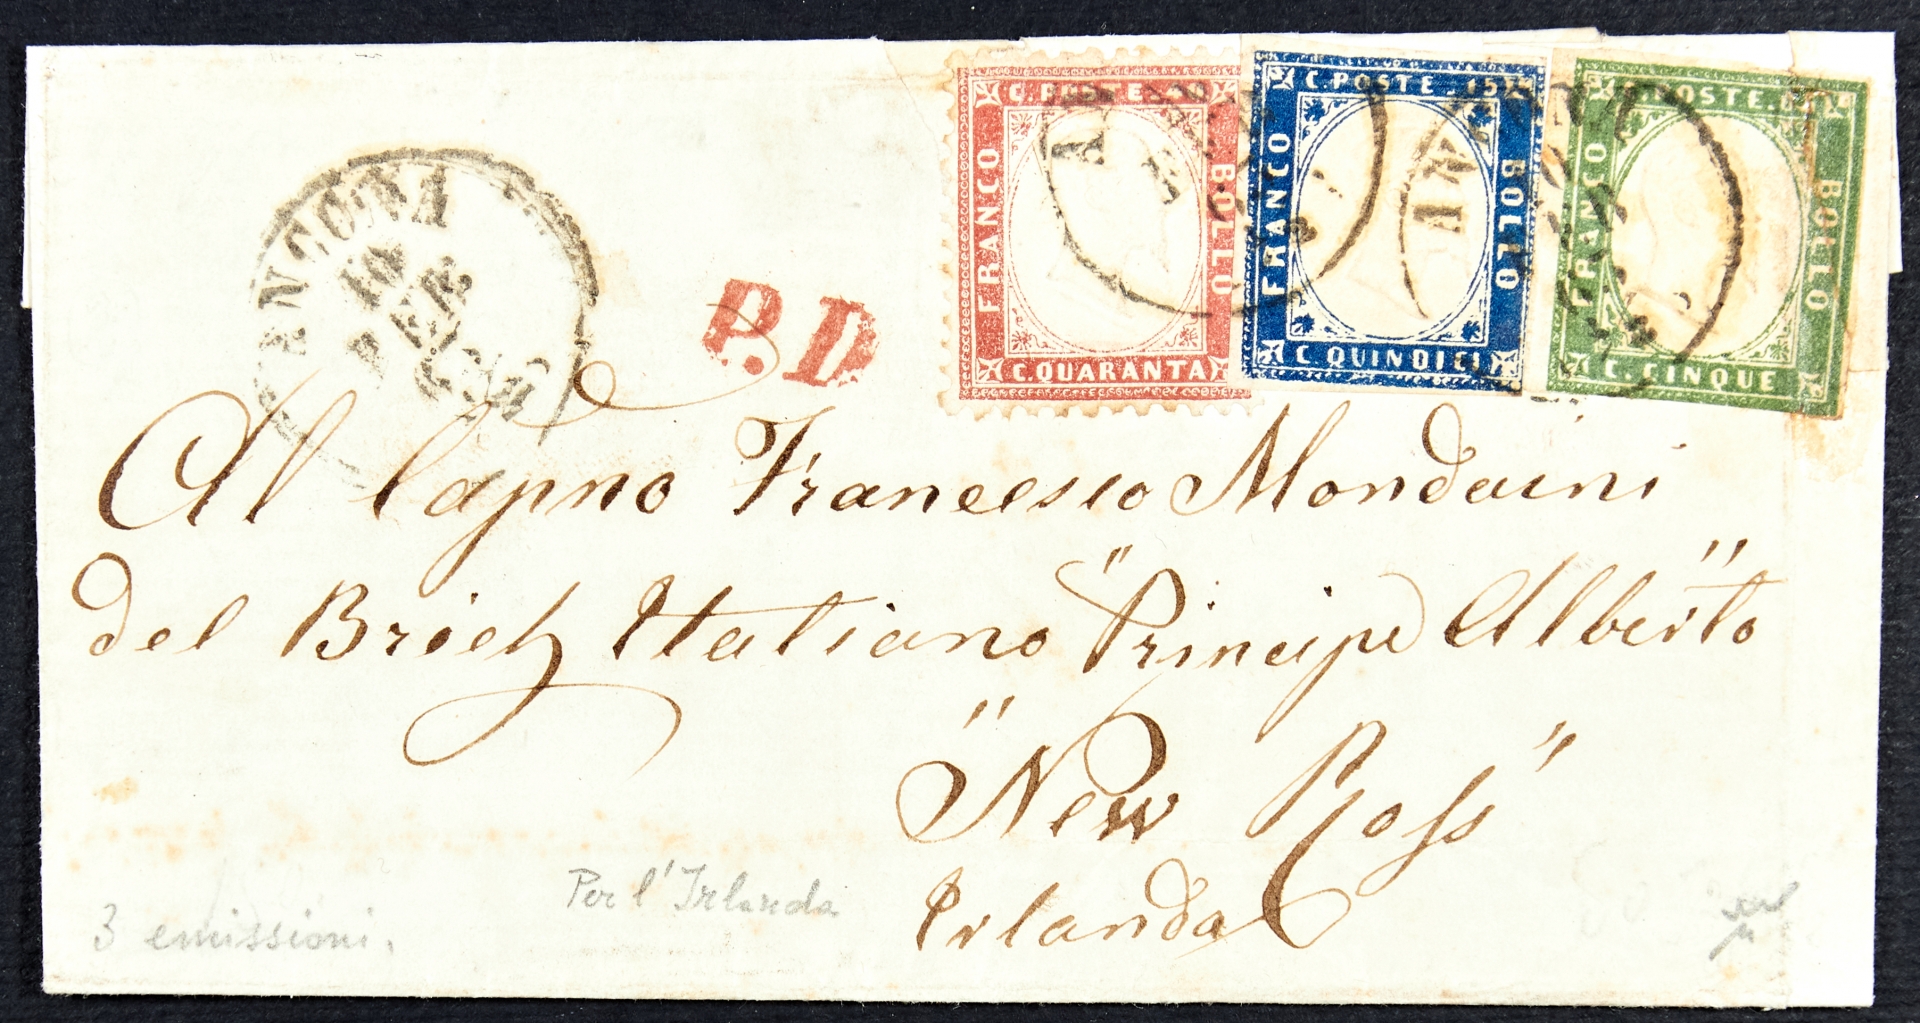 ANCONA
10
FEB
P.D
C. POSTE. 40
FRANCO
BOLLO
C. QUARANTA
C. POSTE. 15
FRANCO
BOLLO
C. QUINDICI
C. POSTE. 5
FRANCO
BOLLO
C. CINQUE
Al Capno Francesco Mondaini
del Brich Italiano "Principe Alberto"
"New Ross"
Irlanda
Per l'Irlanda
3 emissioni.